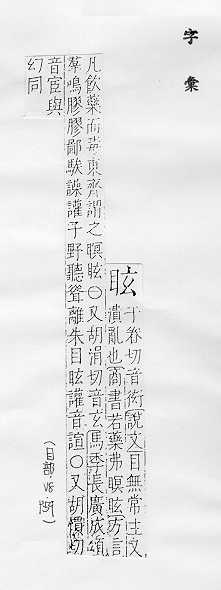 字彙
眩
于眷切音衒說文目無常主又
潰亂也商書若藥弗瞑眩方言
凡飲藥而毒東齊謂之瞑眩○又胡涓切音玄馬季長廣成頌
羣鳴膠膠鄙騃譟讙子野聽聳離朱目眩讙音諠○又胡慣切
音宦與
幻同
（目部